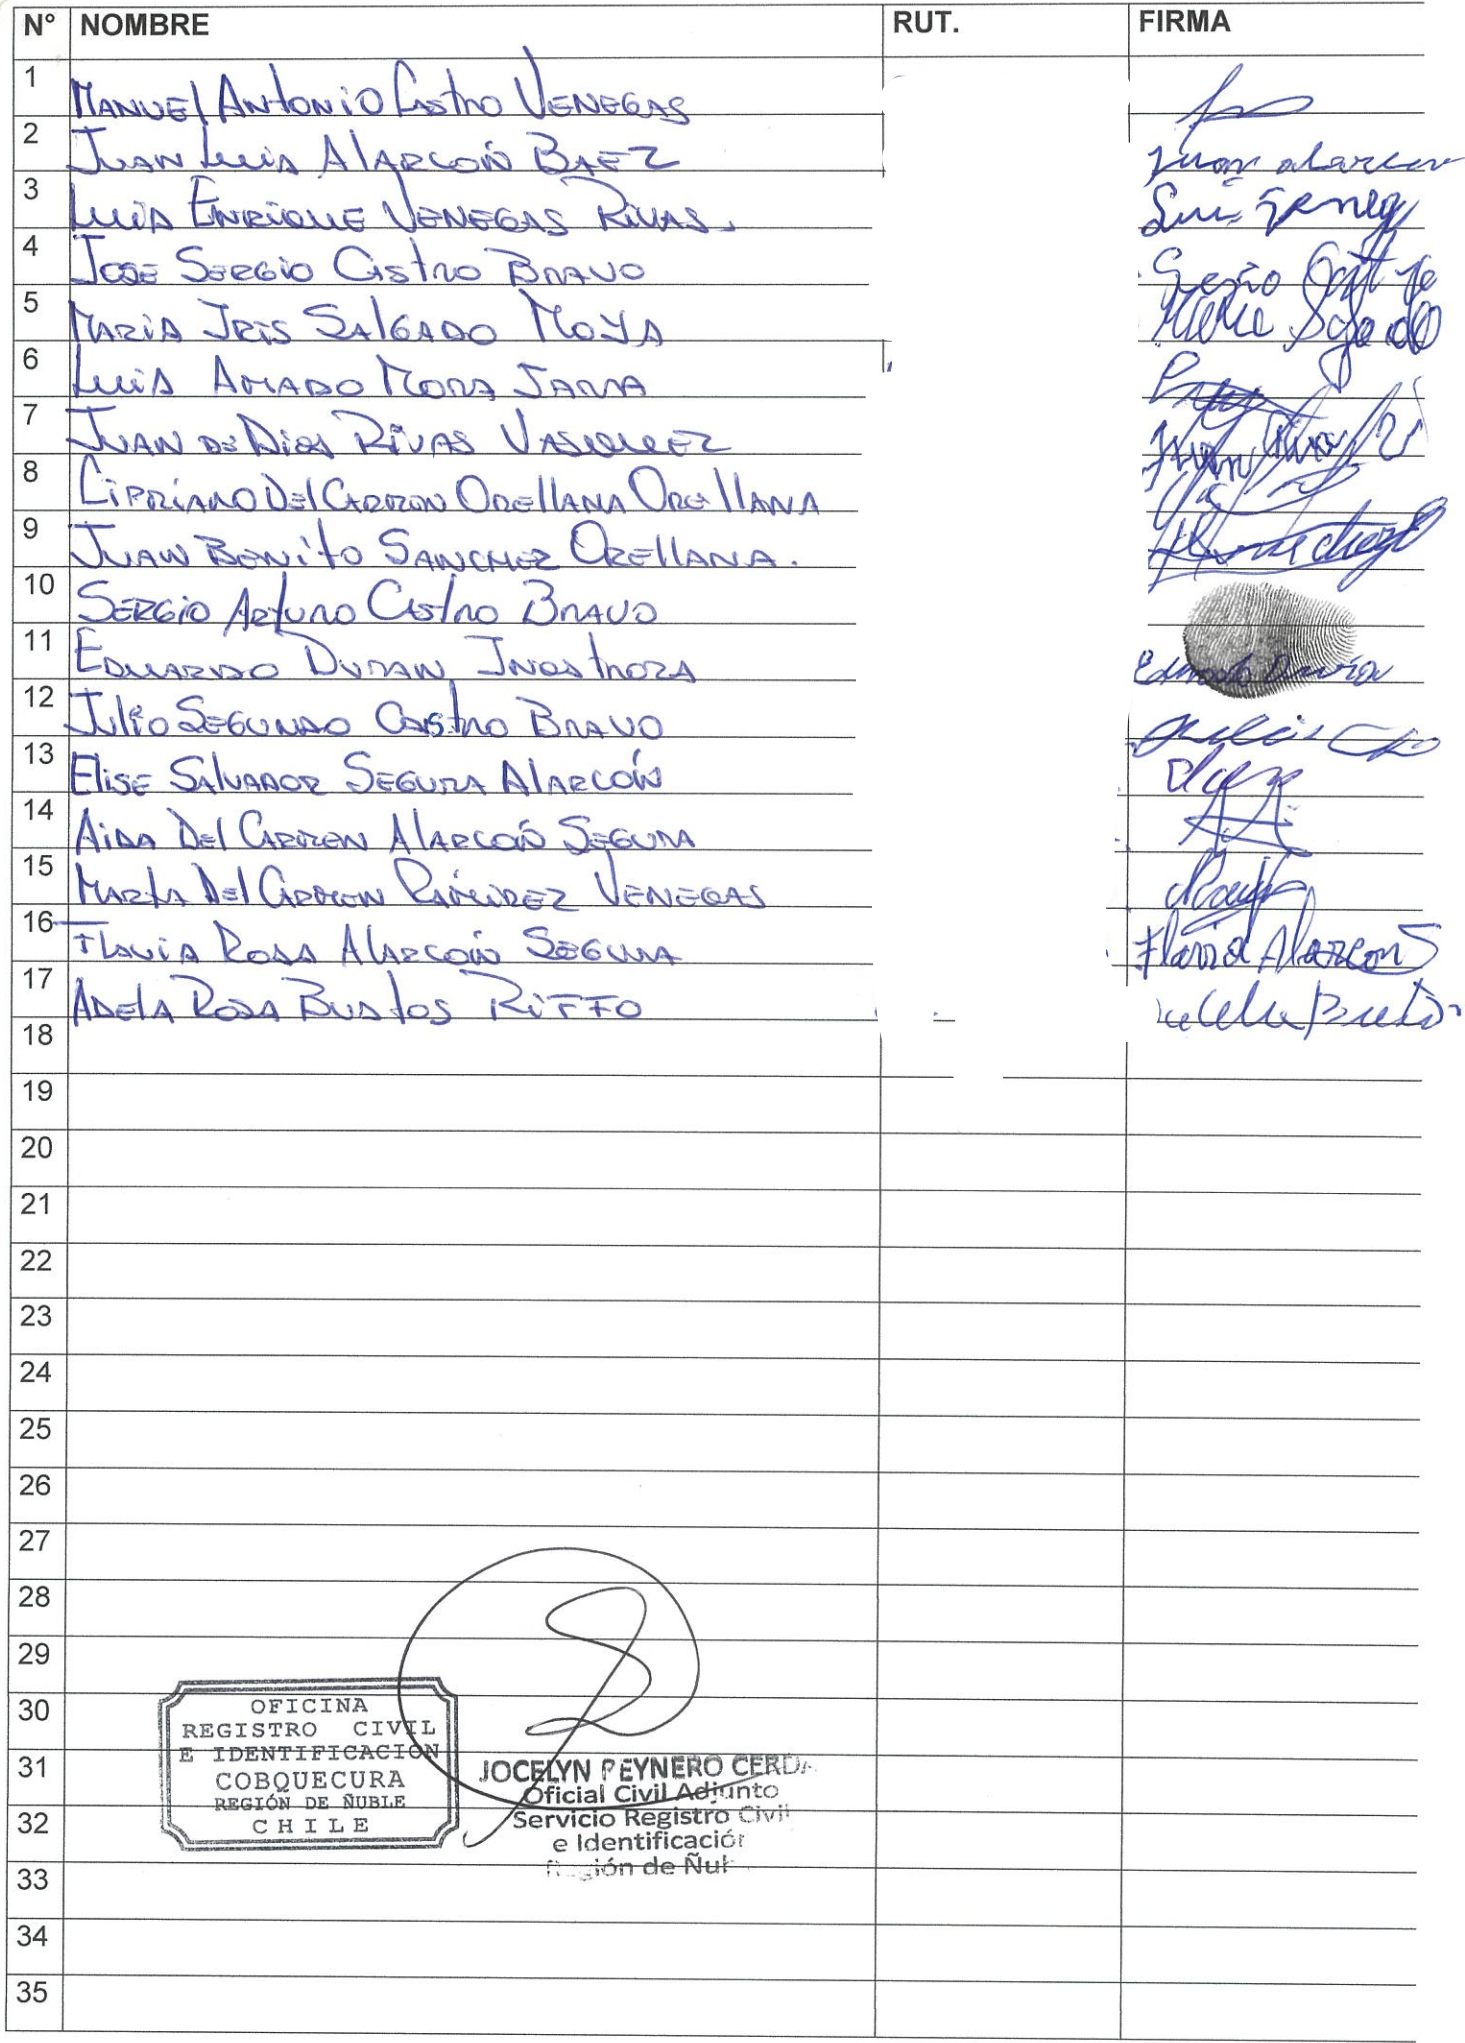 N° NOMBRE RUT. FIRMA
1 MANUEL ANTONIO CASTRO VENEGAS
2 JUAN LUIS ALARCÓN BAEZ Juan alarcon
3 LUIS ENRIQUE VENEGAS RIVAS. Luis
4 JOSE SERGIO CASTRO BRAVO Sergio
5 MARIA IRIS SALGADO MOYA
6 LUIS AMADO MORA JARA
7 JUAN DE DIOS RIVAS VASQUEZ Juan
8 CIPRIANO DEL CARMEN ORELLANA ORELLANA
9 JUAN BENITO SANCHEZ ORELLANA.
10 SERGIO ARTURO CASTRO BRAVO
11 EDUARDO DURAN INOSTROZA
12 JULIO SEGUNDO CASTRO BRAVO
13 ELISE SALVADOR SEGURA ALARCÓN
14 AIDA DEL CARMEN ALARCÓN SEGURA
15 MARTA DEL CARMEN RAMIREZ VENEGAS
16 FLAVIA ROSA ALARCÓN SEGURA Flavia Alarcon S
17 ADELA ROSA BUSTOS RIFFO
18
19
20
21
22
23
24
25
26
27
28
29
30
31
32
33
34
35
OFICINA
REGISTRO CIVIL
E IDENTIFICACION
COBQUECURA
REGIÓN DE ÑUBLE
CHILE
JOCELYN PEYNERO CERDA
Oficial Civil Adjunto
Servicio Registro Civil
e Identificación
Región de